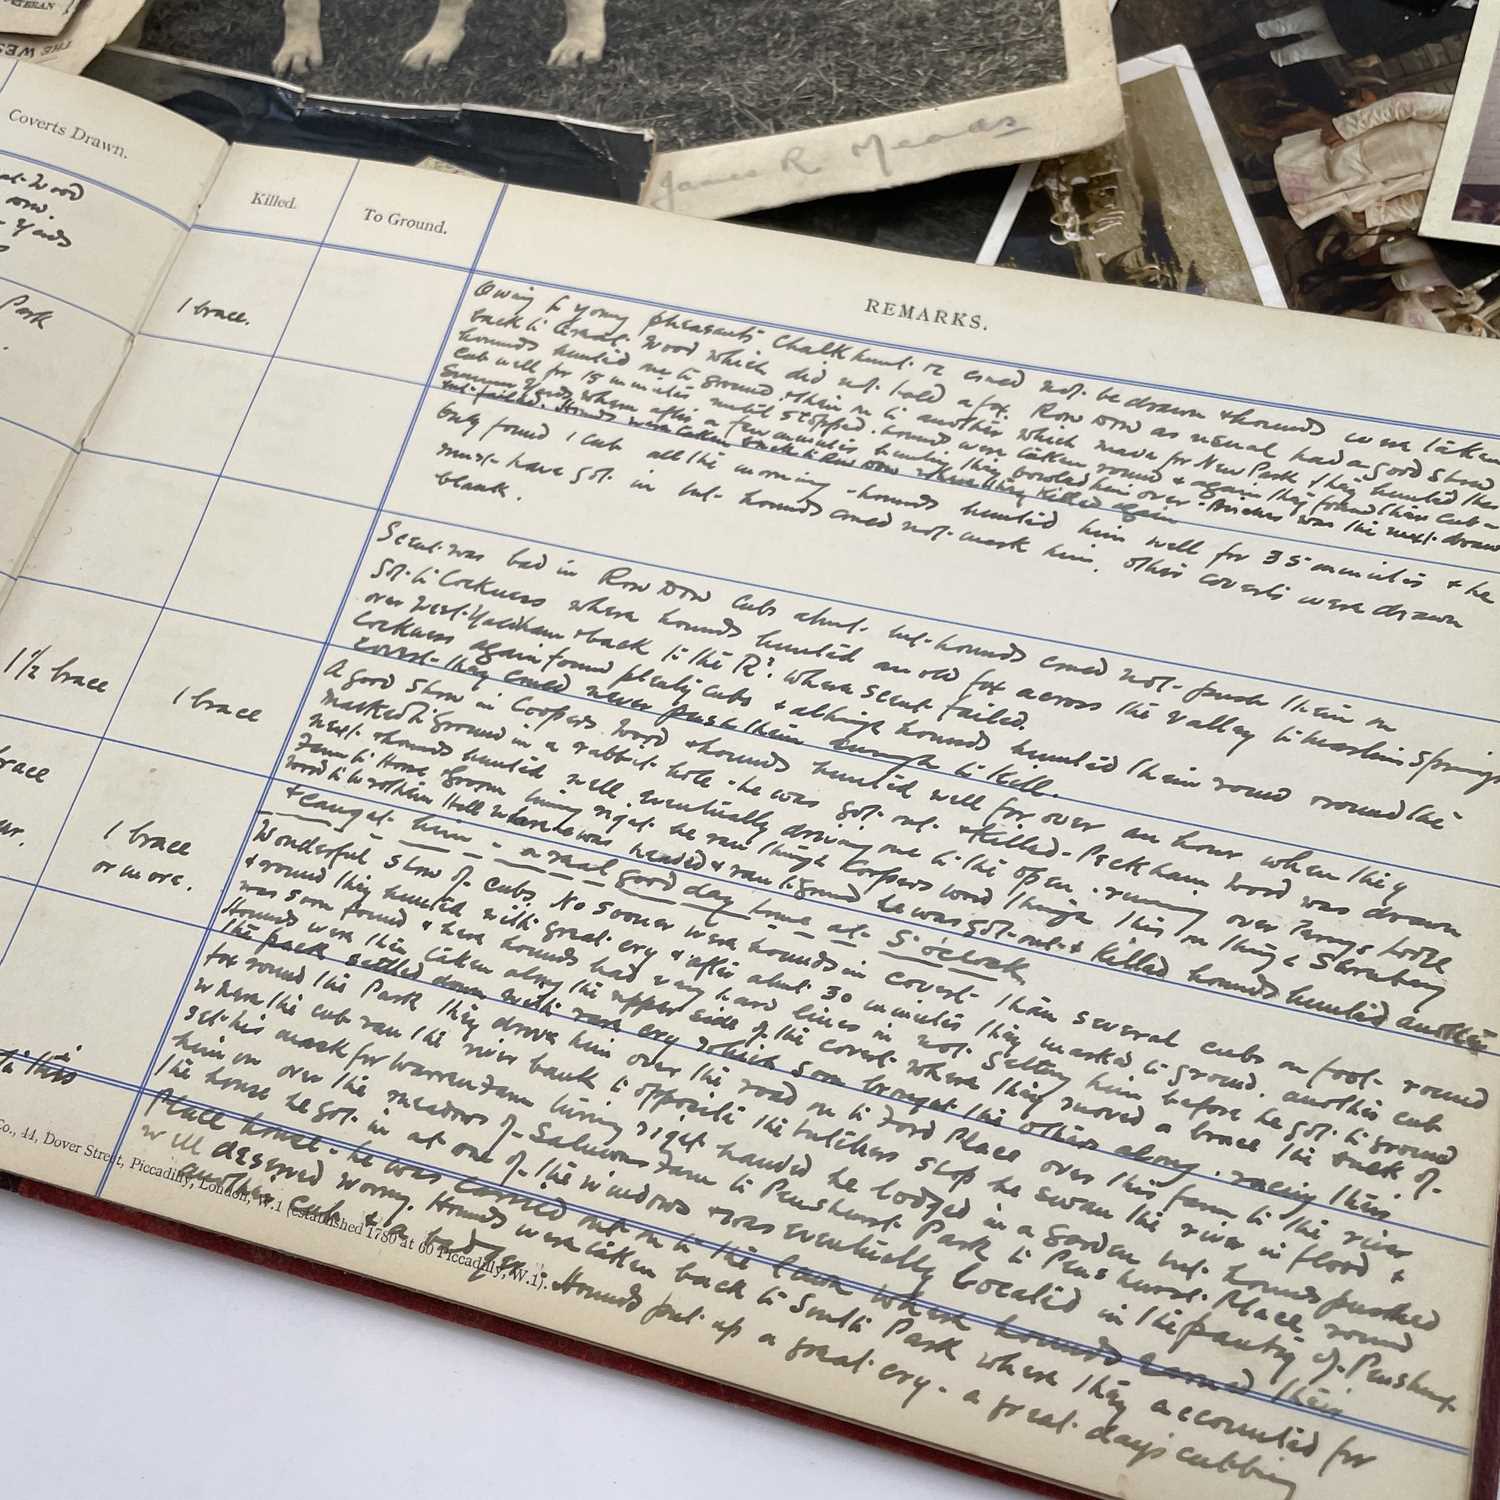 VETERAN
THE WES
James R. Meads
Coverts Drawn.
Killed.
To Ground.
REMARKS.
Wood
Row.
Yards
Park
1 brace.
1½ brace
1 brace
brace
1 brace
or more.
this
Owing to young pheasants Chalkhurst could not be drawn & hounds were taken
back to Great Wood which did not hold a fox. Row Dow as usual had a good show
hounds hunted one to ground & then on to another which made for New Park they hunted this
cub well for 15 minutes until stopped. Hounds were taken round & again they found their cub
Yards where after a few minutes hunting they bowled him over was the next draw
but failed. Hounds were taken back to Row Dow where they killed again
Only found 1 cub all the morning - hounds hunted him well for 35 minutes & he
must have got in but hounds could not mark him. Other coverts were drawn
blank.
Scent was bad in Row Dow cubs about but hounds could not push them on
Got to Corkness where hounds hunted an old fox across the valley to Springs
over West Yaldham & back to the Rd. where scent failed.
Corkness again found plenty cubs & although hounds hunted them round & round the
covert they could never push them enough to kill.
A good show in Coopers Wood & hounds hunted well for over an hour when they
marked to ground in a rabbit hole - he was got out & killed - Peckham Wood was drawn
next & hounds hunted well, eventually driving one to the open, running over Terrys Lodge
Farm to Home turning right he ran through Koopers Wood through this on thro'
Wood to Wrotham Hill where he was headed & ran to ground he was got out & killed hounds hunted another
& caught him - a real good day home at 5 o'clock
Wonderful show of cubs. No sooner were hounds in covert than several cubs on foot round
& round they hunted with great cry & after about 30 minutes they marked to ground. Another cub
was soon found & here hounds had very hard lines in not getting him before he got to ground
Hounds were then taken along the upper side of the covert where they moved a brace the bulk of
the pack settled down with cry which soon brought the others along, racing their
fox round the Park they drove him over the road on to Ford Place over this farm to the river
where the cub ran the river bank to opposite the butchers shop he swam the river in flood &
set his mask for Warren Farm turning right handed he lodged in a garden but hounds pushed
him on over the meadows of Salmons Farm to Penshurst Park to Penshurst Place, round
the house he got in at one of the windows & was eventually located in the pantry of Penshurst
Place house - he was carried out on to the lawn where hounds their
well deserved worry. Hounds were taken back to South Park where they accounted for
another cub & a badger. Hounds put up a great cry - a great days cubbing
Co., 41, Dover Street, Piccadilly, London, W.1 (established 1780 at 60 Piccadilly, W.1).